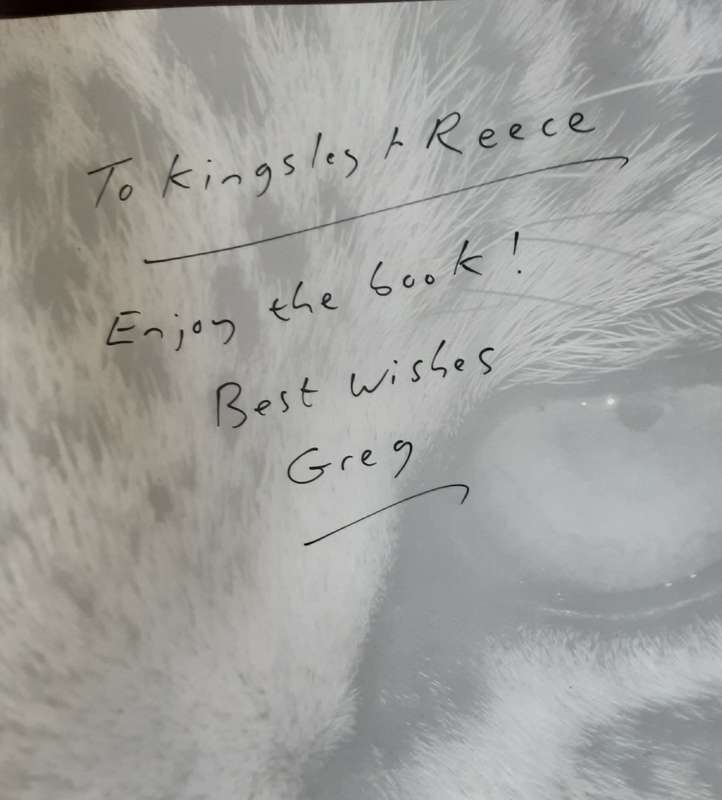 To Kingsley + Reece
Enjoy the book!
Best Wishes
Greg